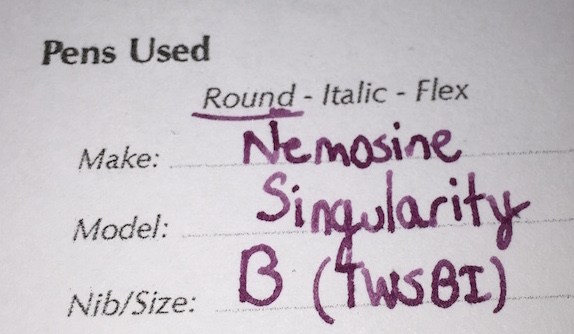 Pens Used
Round - Italic - Flex
Make: Nemosine
Model: Singularity
Nib/Size: B (TWSBI)